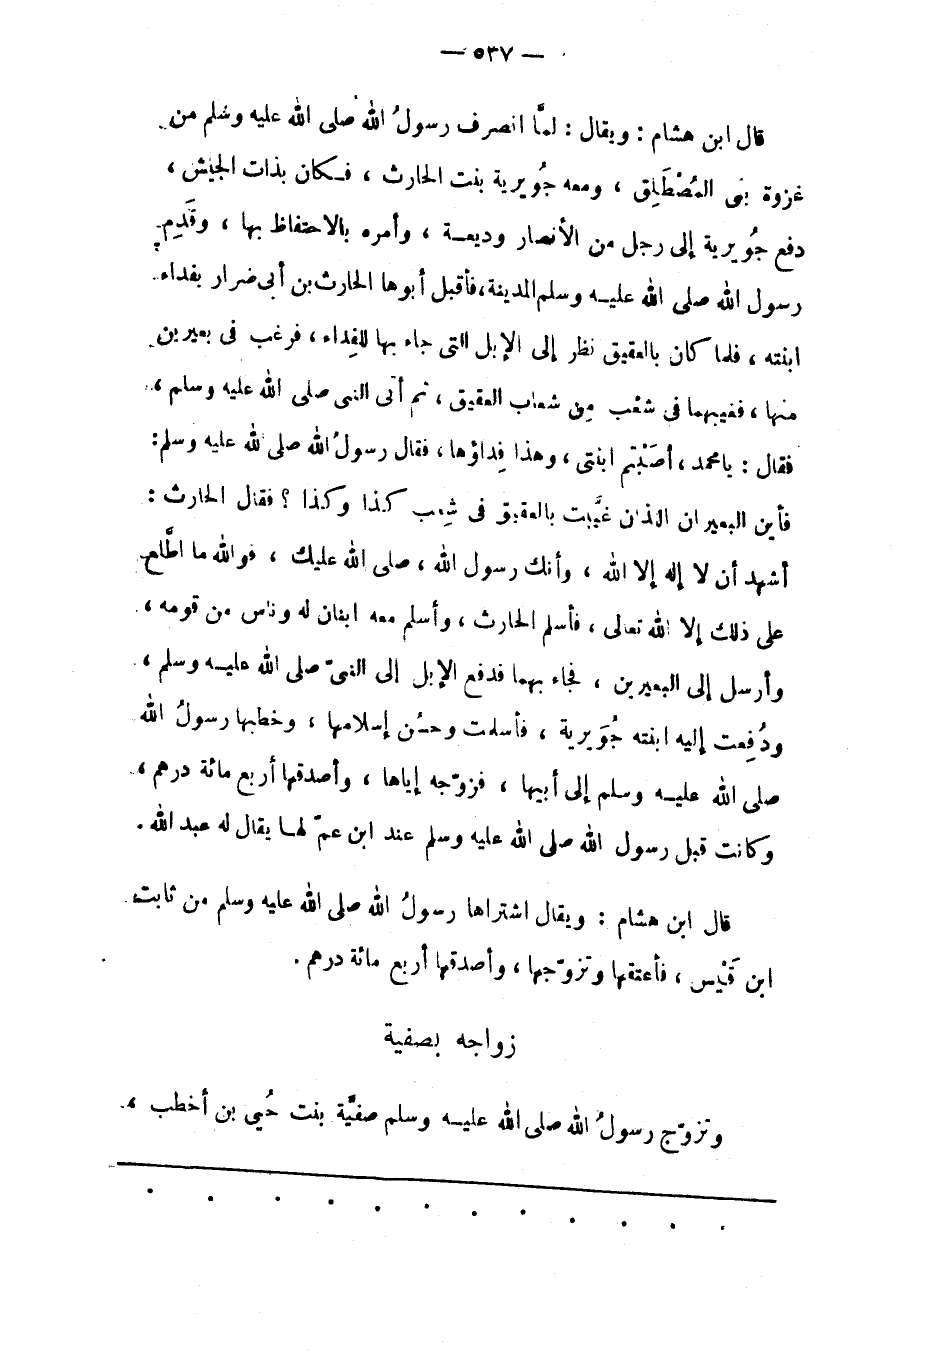 — ٥٣٧ —
قال ابن هشام : ويقال : لمَّا انصرف رسولُ الله صلى الله عليه وسلم من
غزوة بنى المُصْطَلِق ، ومعه جُويرية بنت الحارث ، فكان بذات الجيش ،
دفع جُويرية إلى رجل من الأنصار وديعة ، وأمره بالاحتفاظ بها ، وقَدِم
رسول الله صلى الله عليه وسلم المدينة، فأقبل أبوها الحارث بن أبى ضرار بفداء
ابنته ، فلما كان بالعقيق نظر إلى الإبل التى جاء بها للفِداء ، فرغب فى بعيرين
منها ، فغيبهما فى شعْب مِن شعاب العقيق ، ثم أتى النبى صلى الله عليه وسلم ،
فقال : يا محمد ، أصَبْتم ابنتى ، وهذا فِداؤها ، فقال رسولُ الله صلى لله عليه وسلم:
فأين البعيران اللذان غيَّبت بالعقيق فى شِعب كذا وكذا ؟ فقال الحارث :
أشهد أن لا إله إلا الله ، وأنك رسول الله ، صلى الله عليك ، فوالله ما اطَّلع
على ذلك إلا الله تعالى ، فأسلم الحارث ، وأسلم معه ابنان له وناس من قومه ،
وأرسل إلى البعيرين ، فجاء بهما فدفع الإبل إلى النبىّ صلى الله عليه وسلم ،
ودُفِعت إليه ابنته جُوَيرية ، فأسلمت وحسُن إسلامها ، وخطبها رسولُ الله
صلى الله عليه وسلم إلى أبيها ، فزوّجه إياها ، وأصدقها أربع مائة درهم ،
وكانت قبل رسول الله صلى الله عليه وسلم عند ابن عمّ لها يقال له عبد الله .
قال ابن هشام : ويقال اشتراها رسولُ الله صلى الله عليه وسلم من ثابت
ابن قَيْس ، فأعتقها وتزوّجها ، وأصدقها أربع مائة درهم .
زواجه بصفية
وتزوّج رسولُ الله صلى الله عليه وسلم صفيَّة بنت حُيى بن أخطب ،
. . . . . . . . . . . .